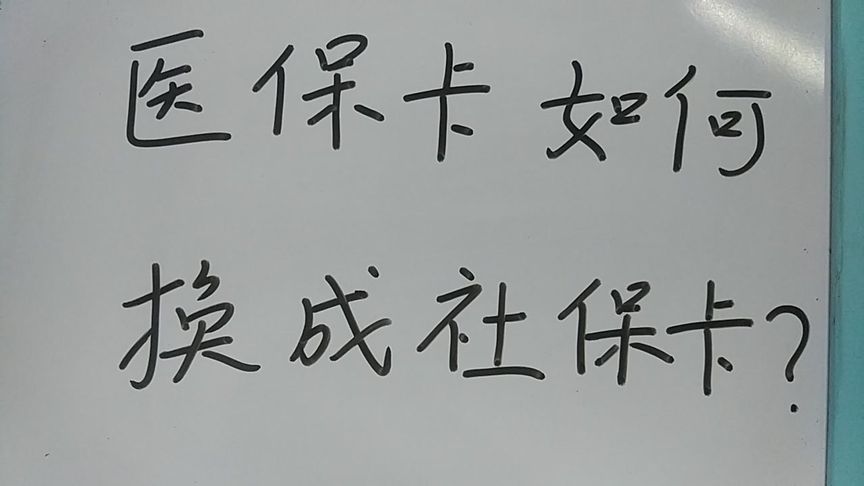 医保卡如何
换成社保卡?